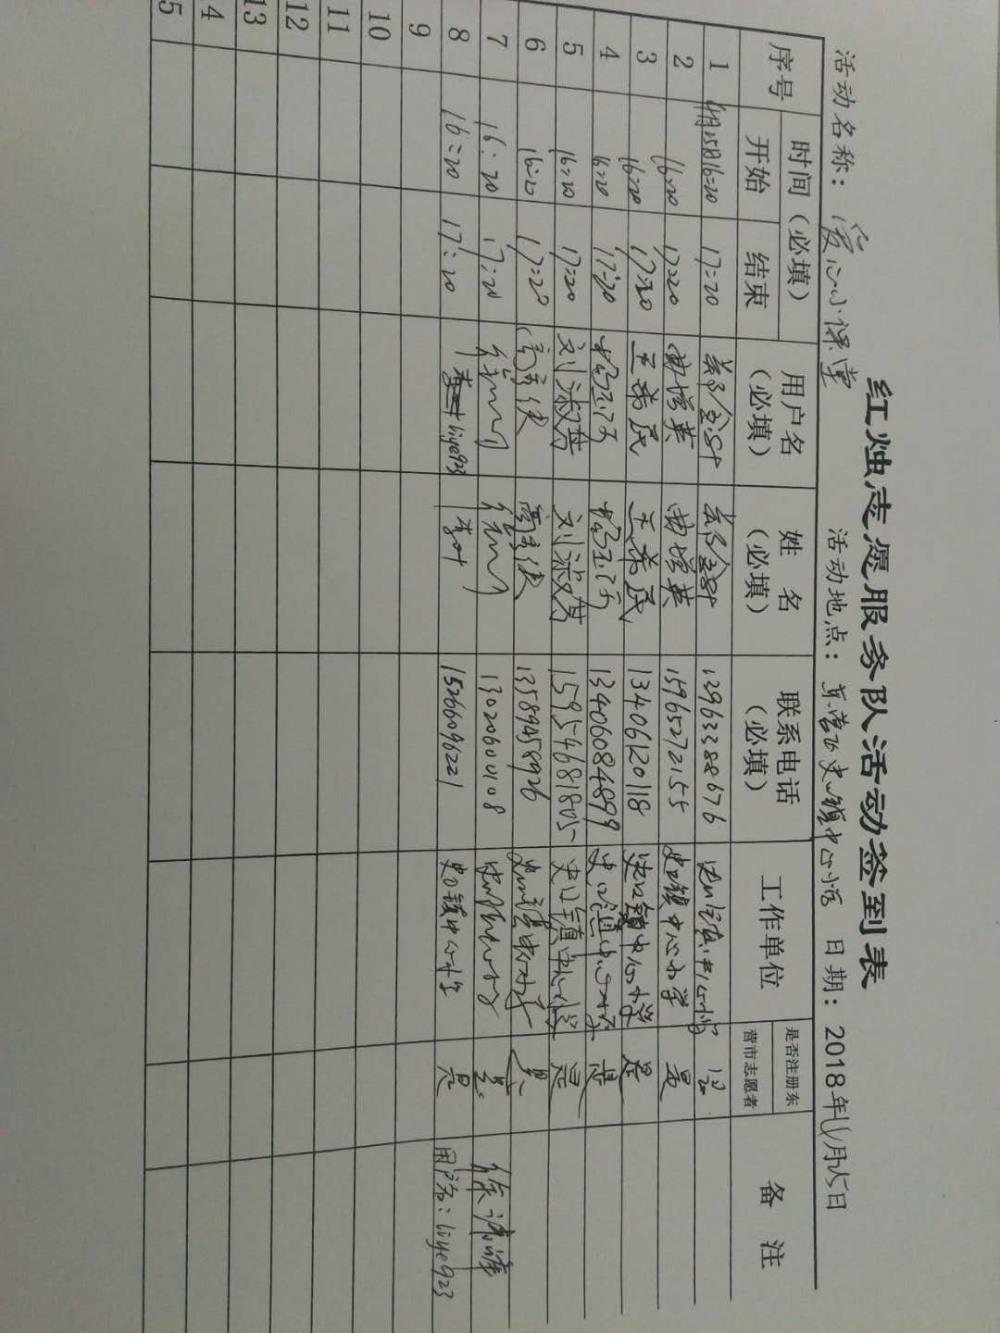 红烛志愿服务队活动签到表
活动名称：爱心小课堂 活动地点：东营区史口镇中心小学 日期：2018年11月15日
序号 时间（必填） 用户名（必填） 姓名（必填） 联系电话（必填） 工作单位 是否注册东营市志愿者 备注
开始 结束
1 11月15日16:20 17:20 13963388676 史口镇中心小学 是
2 16:20 17:20 曲增英 曲增英 15965272155 史口镇中心小学 是
3 16:20 17:20 王希民 王希民 13406120118 史口镇中心小学 是
4 16:20 17:20 13406084899 史口镇中心小学 是
5 16:20 17:20 刘淑梅 刘淑梅 15954681805 史口镇中心小学 是
6 16:20 17:20 13589458926 史口镇中心小学 是
7 16:20 17:20 13020600108 史口镇中心小学 是
8 16:20 17:20 liye923 李叶 15266096221 史口镇中心小学 是 用户名：liye923
9
10
11
12
13
4
5